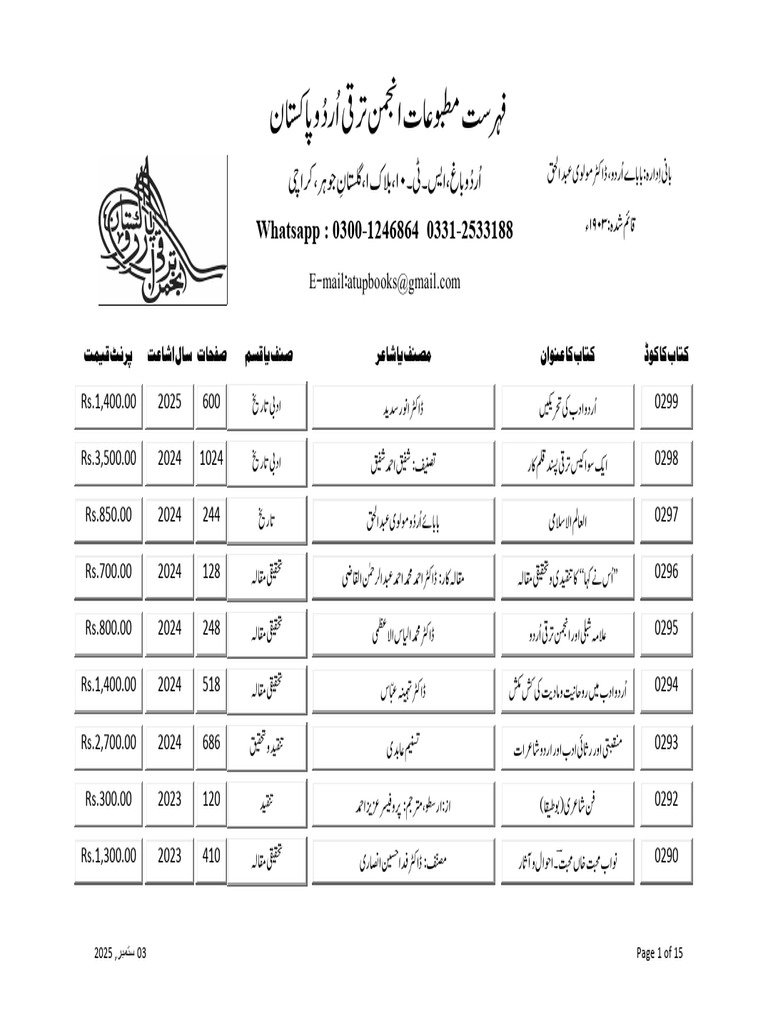 فہرست مطبوعات انجمن ترقی اُردو پاکستان
بانی اِدارہ: بابائے اُردو، ڈاکٹر مولوی عبدالحق
اُردو باغ، ایس۔ٹی۔۱۰، بلاک ۱، گلستانِ جوہر، کراچی
قائم شدہ: ۱۹۰۳ء
Whatsapp : 0300-1246864 0331-2533188
E-mail:atupbooks@gmail.com
انجمن ترقی اردو پاکستان
کتاب کا کوڈ کتاب کا عنوان مصنف یا شاعر صنف یا قسم صفحات سال اشاعت پرنٹ قیمت
0299 اُردو ادب کی تحریکیں ڈاکٹر انور سدید ادبی تاریخ 600 2025 Rs.1,400.00
0298 ایک سو اکیس ترقی پسند قلم کار تصنیف: شفیق احمد شفیق ادبی تاریخ 1024 2024 Rs.3,500.00
0297 العالم الاسلامی بابائے اُردو مولوی عبدالحق تاریخ 244 2024 Rs.850.00
0296 ”اُس نے کہا“ کا تنقیدی و تحقیقی مقالہ مقالہ کار: ڈاکٹر احمد محمد احمد عبدالرحمٰن القاضی تحقیقی مقالہ 128 2024 Rs.700.00
0295 علامہ شبلی اور انجمن ترقی اُردو ڈاکٹر محمد الیاس الاعظمی تحقیقی مقالہ 248 2024 Rs.800.00
0294 اُردو ادب میں روحانیت و مادیت کی کش مکش ڈاکٹر تہمینہ عبّاس تحقیقی مقالہ 518 2024 Rs.1,400.00
0293 منقبتی اور رثائی ادب اور اردو شاعرات تسنیم عابدی تنقید و تحقیق 686 2024 Rs.2,700.00
0292 فن شاعری (بوطیقا) از: ارسطو، مترجم: پروفیسر عزیز احمد تنقید 120 2023 Rs.300.00
0290 نواب محبت خاں محبتؔ۔ احوال و آثار مصنف: ڈاکٹر فدا حسین انصاری تحقیقی مقالہ 410 2023 Rs.1,300.00
03 ستمبر, 2025 Page 1 of 15